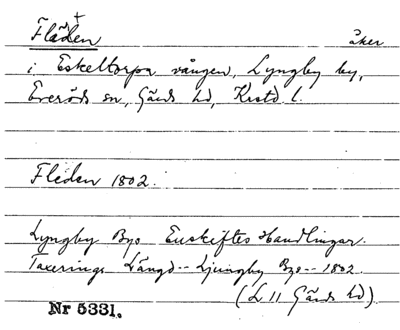 Fläden åker
i Eskeltorpa vången, Lyngby by,
Everöds sn, Gärds hd, Krstd l.
Fleden 1802.
Lyngby Bys Enskiftes Handlingar.
Taxerings Längd -- Ljungby Bys -- 1802.
(L 11 Gärds hd)
Nr 5331.